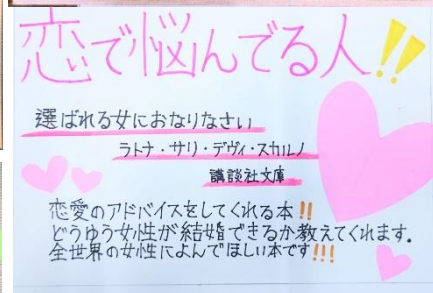 恋で悩んでる人!!
選ばれる女におなりなさい
ラトナ・サリ・デヴィ・スカルノ
講談社文庫
恋愛のアドバイスをしてくれる本!!
どうゆう女性が結婚できるか教えてくれます.
全世界の女性によんでほしい本です!!!